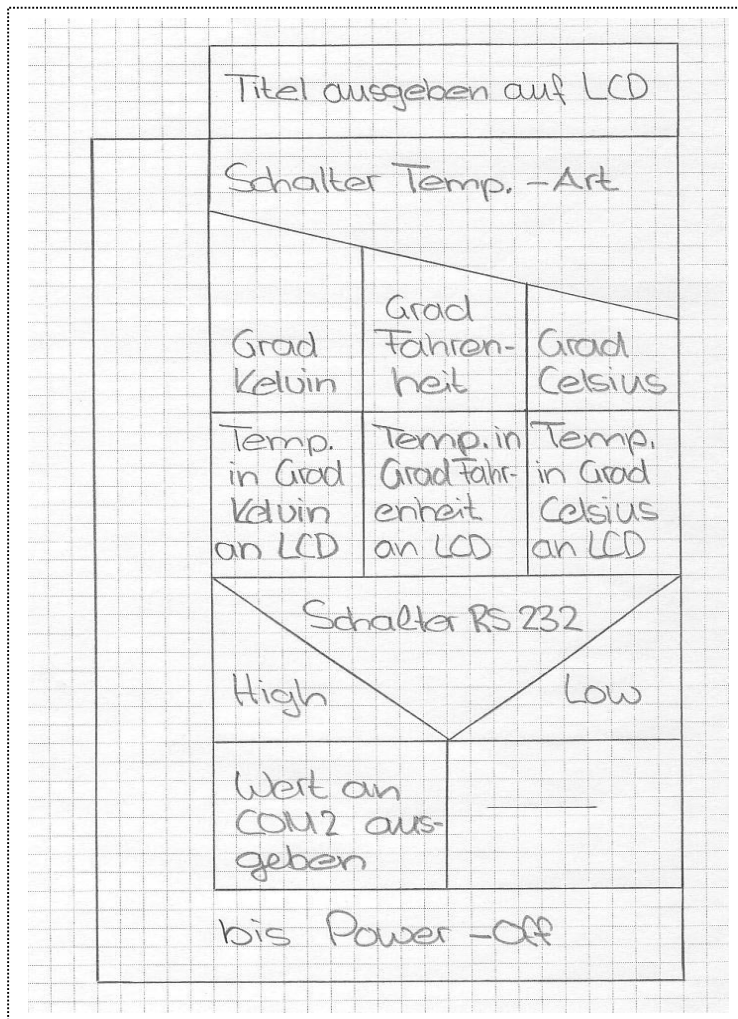 Titel ausgeben auf LCD
Schalter Temp. - Art
Grad
Kelvin
Grad
Fahren-
heit
Grad
Celsius
Temp.
in Grad
Kelvin
an LCD
Temp. in
Grad Fahr-
enheit
an LCD
Temp.
in Grad
Celsius
an LCD
Schalter RS 232
High
Low
Wert an
COM2 aus-
geben
bis Power - Off